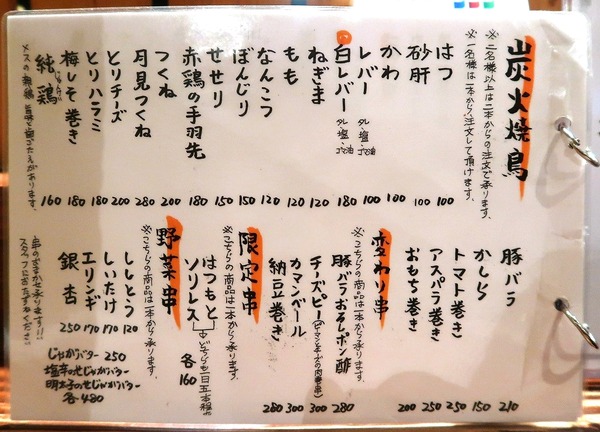 炭火焼鳥
※二名様以上は二本からの注文で承ります。
※一名様は一本から注文して頂けます。
はつ 100
砂肝 100
かわ 100
レバー タレ・塩・ゴマ油 100
白レバー タレ・塩・ゴマ油 180
ねぎま 120
もも 120
なんこつ 120
ぼんじり 150
せせり 150
赤鶏の手羽先 180
つくね 200
月見つくね 280
とりチーズ 200
とりハラミ 180
梅しそ巻き 180
純鶏 160
メスの親鶏 旨味と歯ごたえがあります。
豚バラ 210
かしら 150
トマト巻き 250
アスパラ巻き 250
おもち巻き 200
変わり串
※こちらの商品は一本から承ります。
豚バラおろしポン酢 280
チーズピー(ピーマンとチーズの肉巻串) 300
カマンベール 300
納豆巻き 280
限定串
※こちらの商品は一本から承ります。
はつもと
ソリレス
どちらも一日五本程の
各160
野菜串
※こちらの商品は一本から承ります。
ししとう 120
しいたけ 170
エリンギ 170
銀杏 250
じゃがバター 250
塩辛のせじゃがバター
明太子のせじゃがバター
各480
串のおまかせ承ります!!
スタッフにおたずねください。